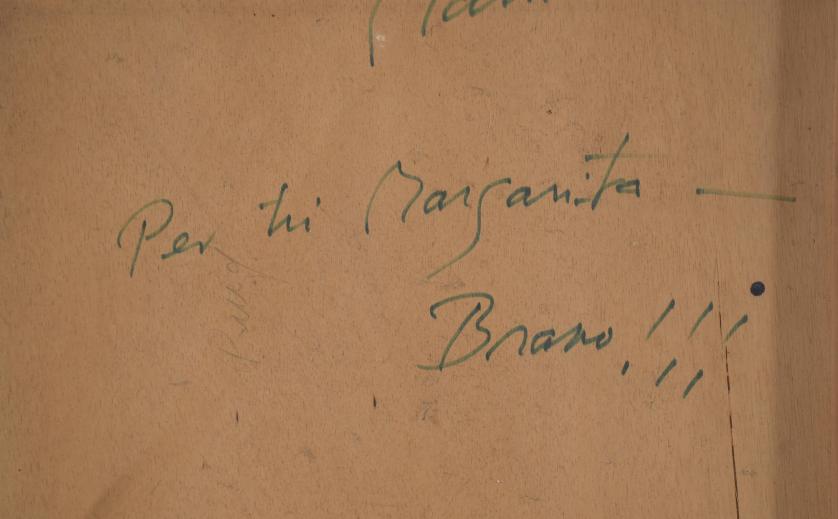 Per tri Margarita —
Bravo!!!